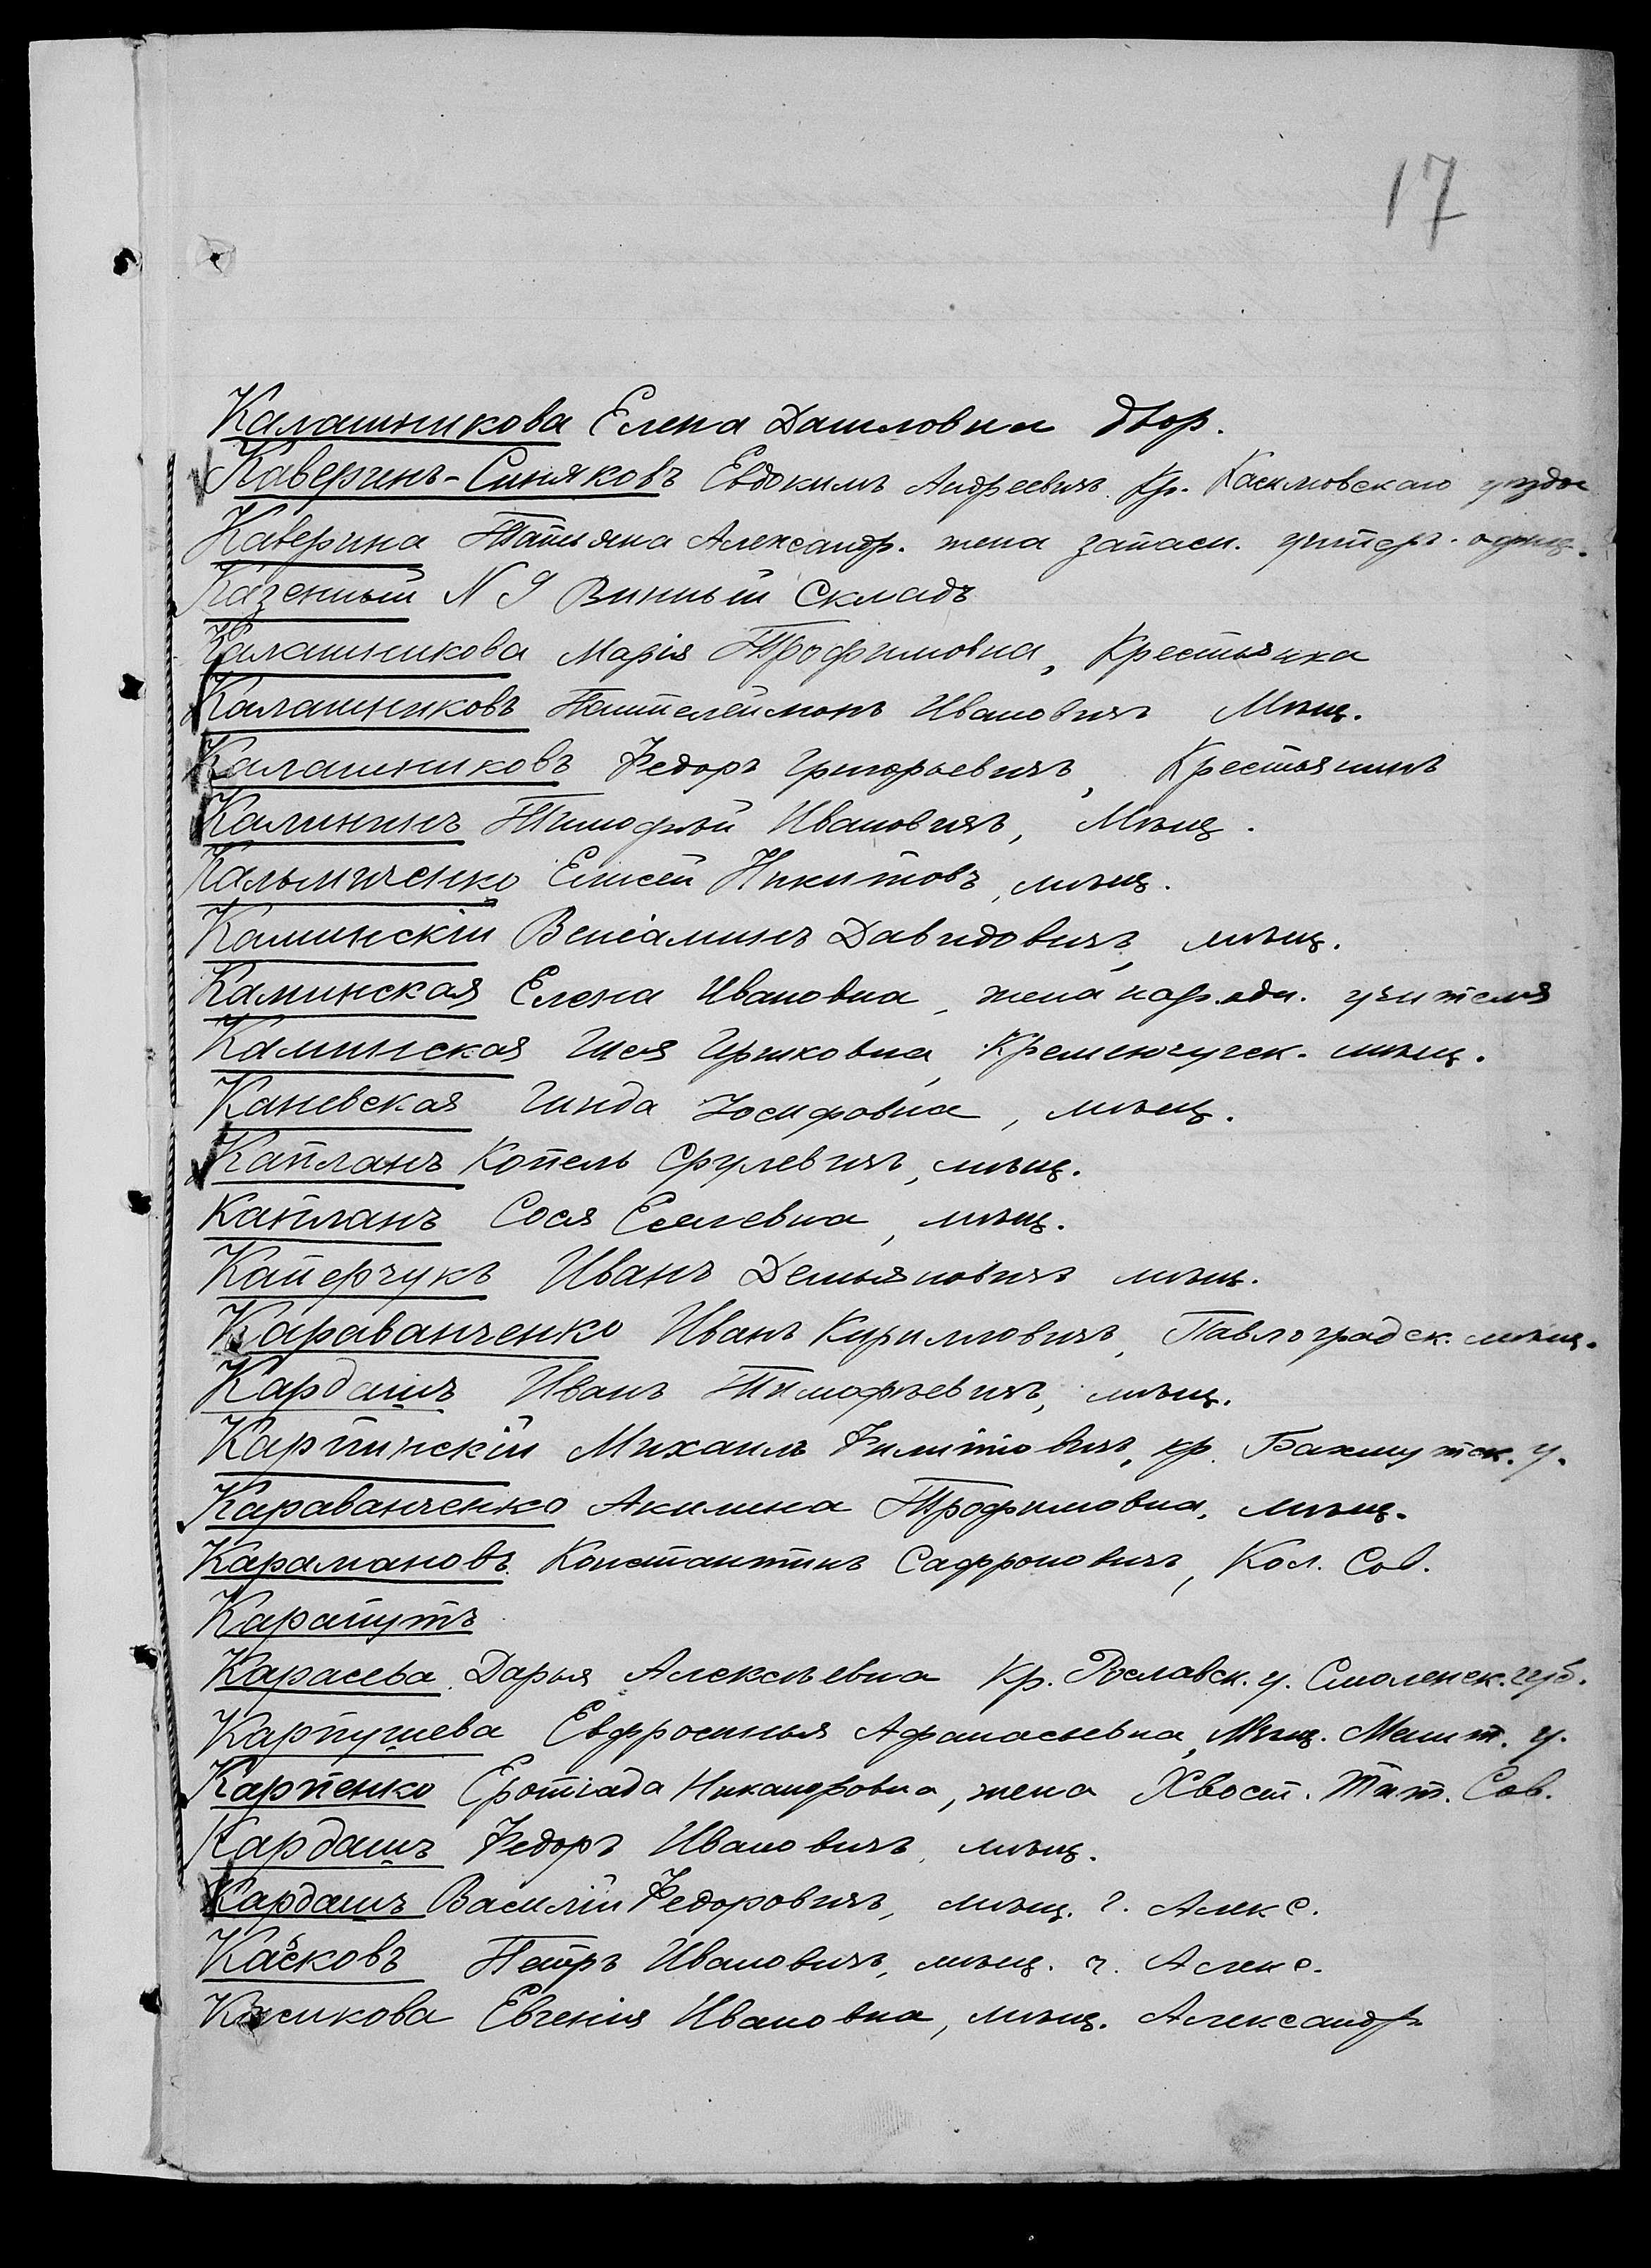 17
Калашникова Елена Даниловна двор.
Каверинъ-Синяковъ Евдокимъ Андреевичъ Кр. Касимовскаго уѣзда
Каверина Татьяна Александр. жена запасн. унтеръ-офиц.
Казенный N 9 Винный Складъ
Калашникова Марія Трофимовна, Крестьянка
Калашниковъ Пантелеймонъ Ивановичъ Мѣщ.
Калашниковъ Федоръ Григорьевичъ, Крестьянинъ
Калининъ Тимофѣй Ивановичъ, Мѣщ.
Кальмиченко Елисей Никитовъ, мѣщ.
Каминскій Веніаминъ Давидовичъ, мѣщ.
Каминская Елена Ивановна, жена народн. учителя
Каминская Шея Ириковна, Кременчугск. мѣщ.
Каневская Гинда Іосифовна, мѣщ.
Капланъ Копель Срулевичъ, мѣщ.
Капланъ Сося Еселевна, мѣщ.
Каперчукъ Иванъ Демьяновичъ мѣщ.
Караванченко Иванъ Кирилловичъ, Павлоградск. мѣщ.
Кардашъ Иванъ Тимофѣевичъ, мѣщ.
Карпинскій Михаилъ Филиповичъ, кр. Бахмутск. у.
Караванченко Акилина Трофимовна, мѣщ.
Карамановъ Константинъ Сафроновичъ, Кол. Сов.
Карапутъ
Карасева Дарья Алексѣевна Кр. Рославск. у. Смоленск. губ.
Карпушева Евфросинья Афанасьевна, Мѣщ. Мелит. у.
Карпенко Еротіада Никандровна, жена Хвост. Тит. Сов.
Кардашъ Федоръ Ивановичъ, мѣщ.
Кардашъ Василій Федоровичъ, мѣщ. г. Алекс.
Касковъ Петръ Ивановичъ, мѣщ. г. Алекс.
Касикова Евгенія Ивановна, мѣщ. Александр.